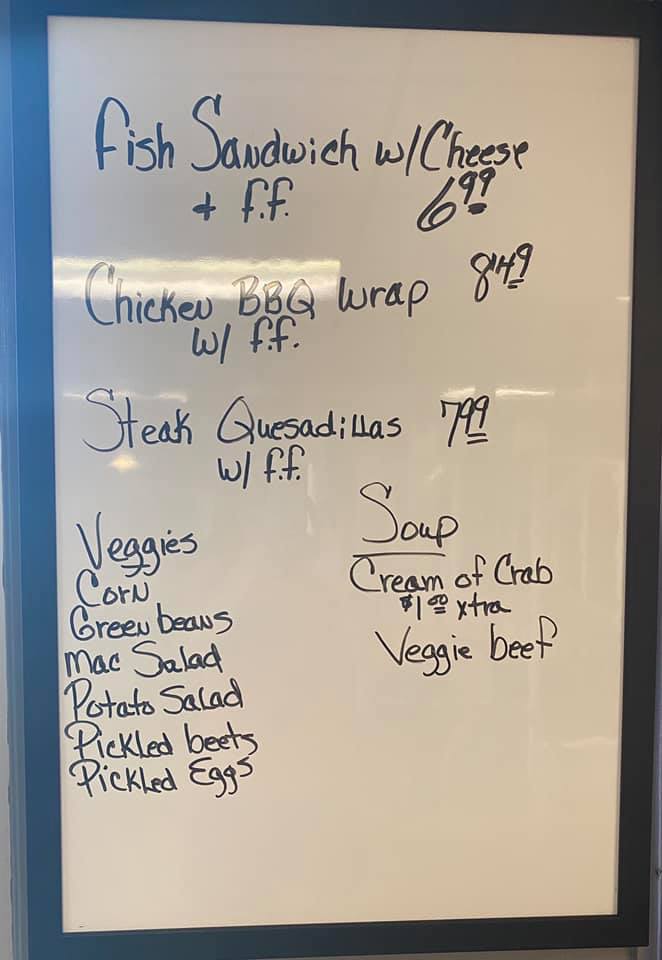 Fish Sandwich w/Cheese
+ f.f. 6.99
Chicken BBQ Wrap 8.49
w/ f.f.
Steak Quesadillas 7.99
w/ f.f.
Veggies
Corn
Green beans
Mac Salad
Potato Salad
Pickled beets
Pickled Eggs
Soup
Cream of Crab
$1.00 xtra
Veggie beef